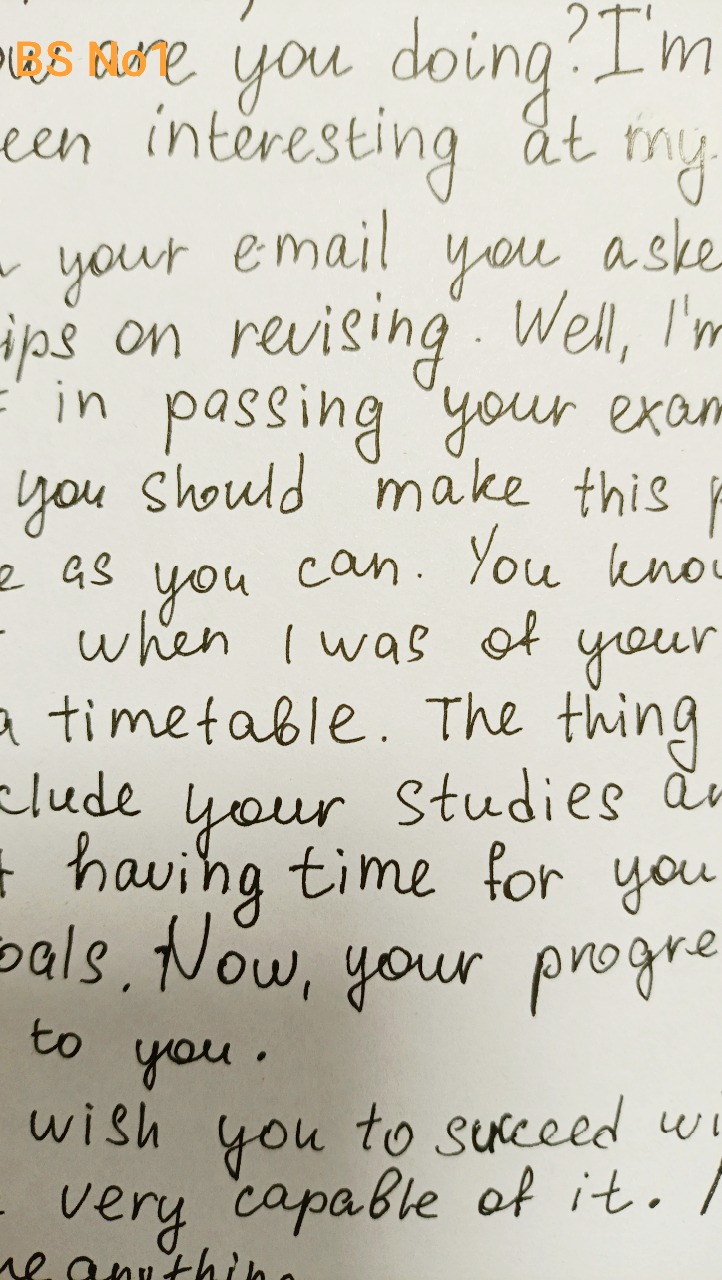 BS No1
are you doing? I'm
een interesting at my
your email you aske
ips on revising. Well, I'm
in passing your exam
you should make this p
e as you can. You know
when I was of your
a timetable. The thing
clude your studies an
t having time for you
oals. Now, your progre
to you.
wish you to succeed wi
very capable of it.
me anything